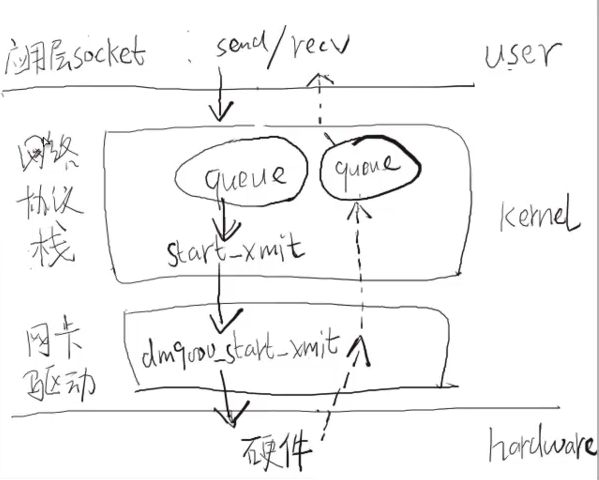 应用层socket : send/recv user
网络
协议
栈
queue queue
start_xmit
kernel
网卡
驱动
dm9000_start_xmit
硬件
hardware